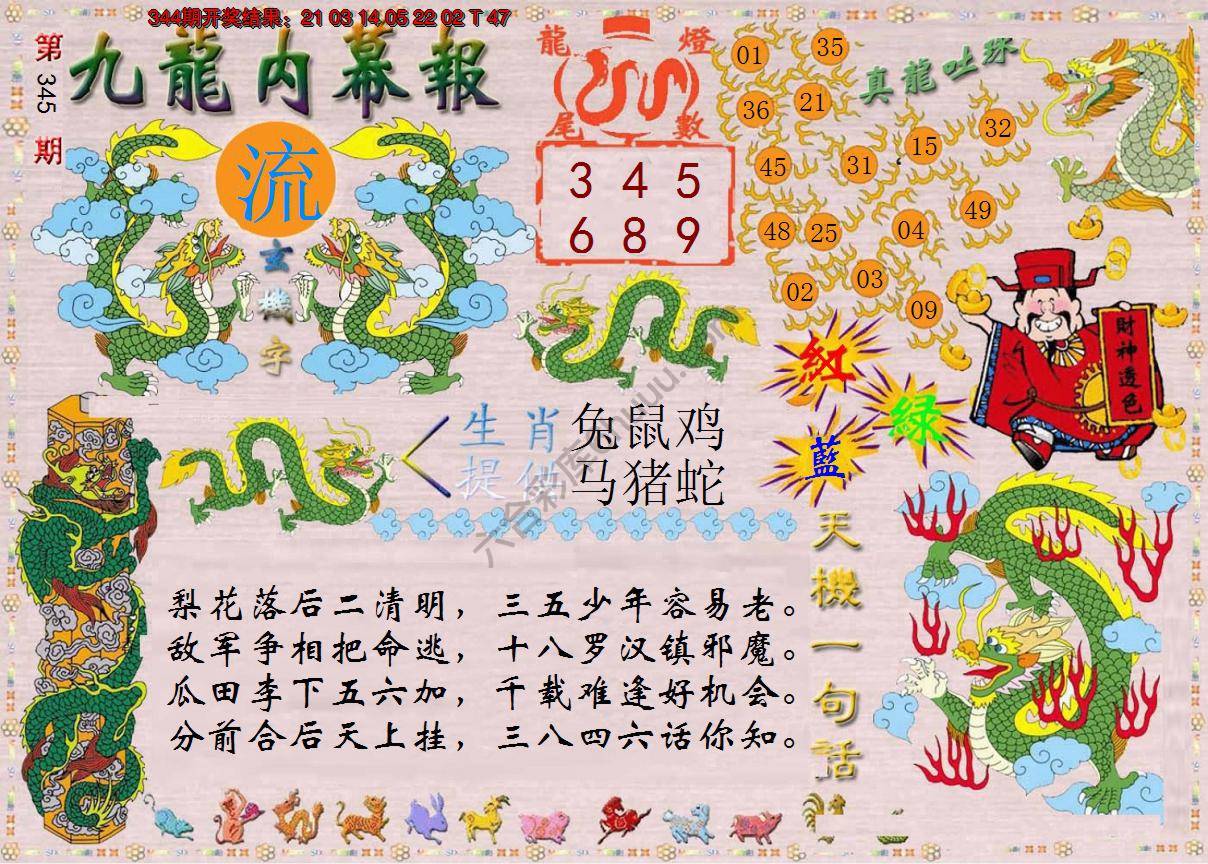 344期开奖结果：21 03 14 05 22 02 T 47
第345期
九龍内幕報
流
玄機字
龍燈
尾數
3 4 5
6 8 9
真龍吐珠
01 35
36 21
45 31 15 32
48 25 04 49
02 03 09
財神透色
紅
綠
藍
生肖 兔鼠鸡
提供 马猪蛇
天機一句話
梨花落后二清明，三五少年容易老。
敌军争相把命逃，十八罗汉镇邪魔。
瓜田李下五六加，千载难逢好机会。
分前合后天上挂，三八四六话你知。